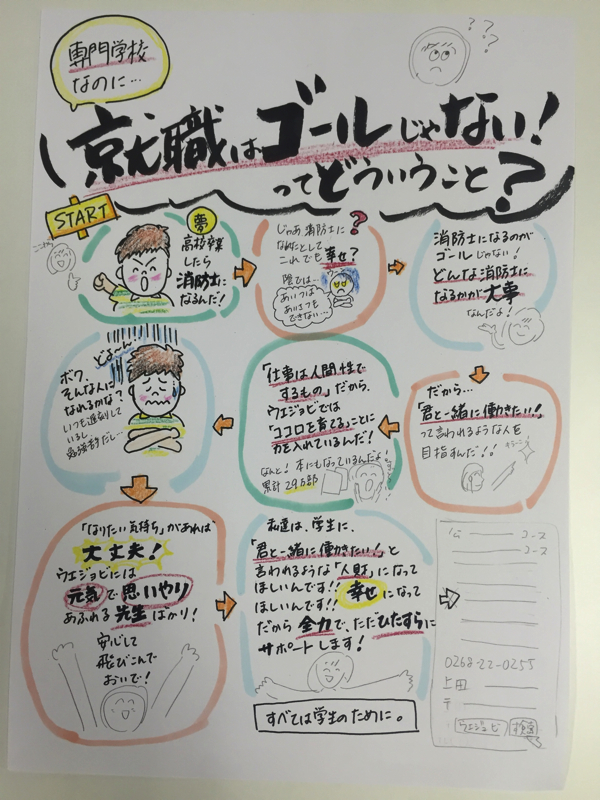 専門学校
なのに…
???
就職はゴールじゃない!
ってどういうこと?
START
ここから
夢
高校卒業
したら
消防士に
なるんだ!
じゃあ消防士に
なれたとして
これでも幸せ?
陰では…
あいつは
あいさつも
できない…
消防士になるのが
ゴールじゃない!
どんな消防士に
なるかが大事
なんだよ!
だから…
「君と一緒に働きたい!」
って言われるような人を
目指すんだ!!
キラーン
「仕事は人間性で
するもの」だから、
ウエジョビでは
「ココロを育てる」ことに
力を入れているんだ!
なんと!本にもなっているんだよ!
累計29万部
どよーん
ボク、
そんなんに
なれるかな?
いつも遅刻して
いるし、
忍耐力だし…
「なりたい気持ち」があれば、
大丈夫!
ウエジョビには
元気で思いやり
あふれる先生ばかり!
安心して
飛びこんで
おいで!
私達は、学生に、
「君と一緒に働きたい!」と
言われるような「人財」になって
ほしいんです!!幸せになって
ほしいんです!!
だから全力で、ただひたすらに
サポートします!
すべては学生のために。
コース
コース
0268-22-0255
上田
〒
ウエジョビ 検索